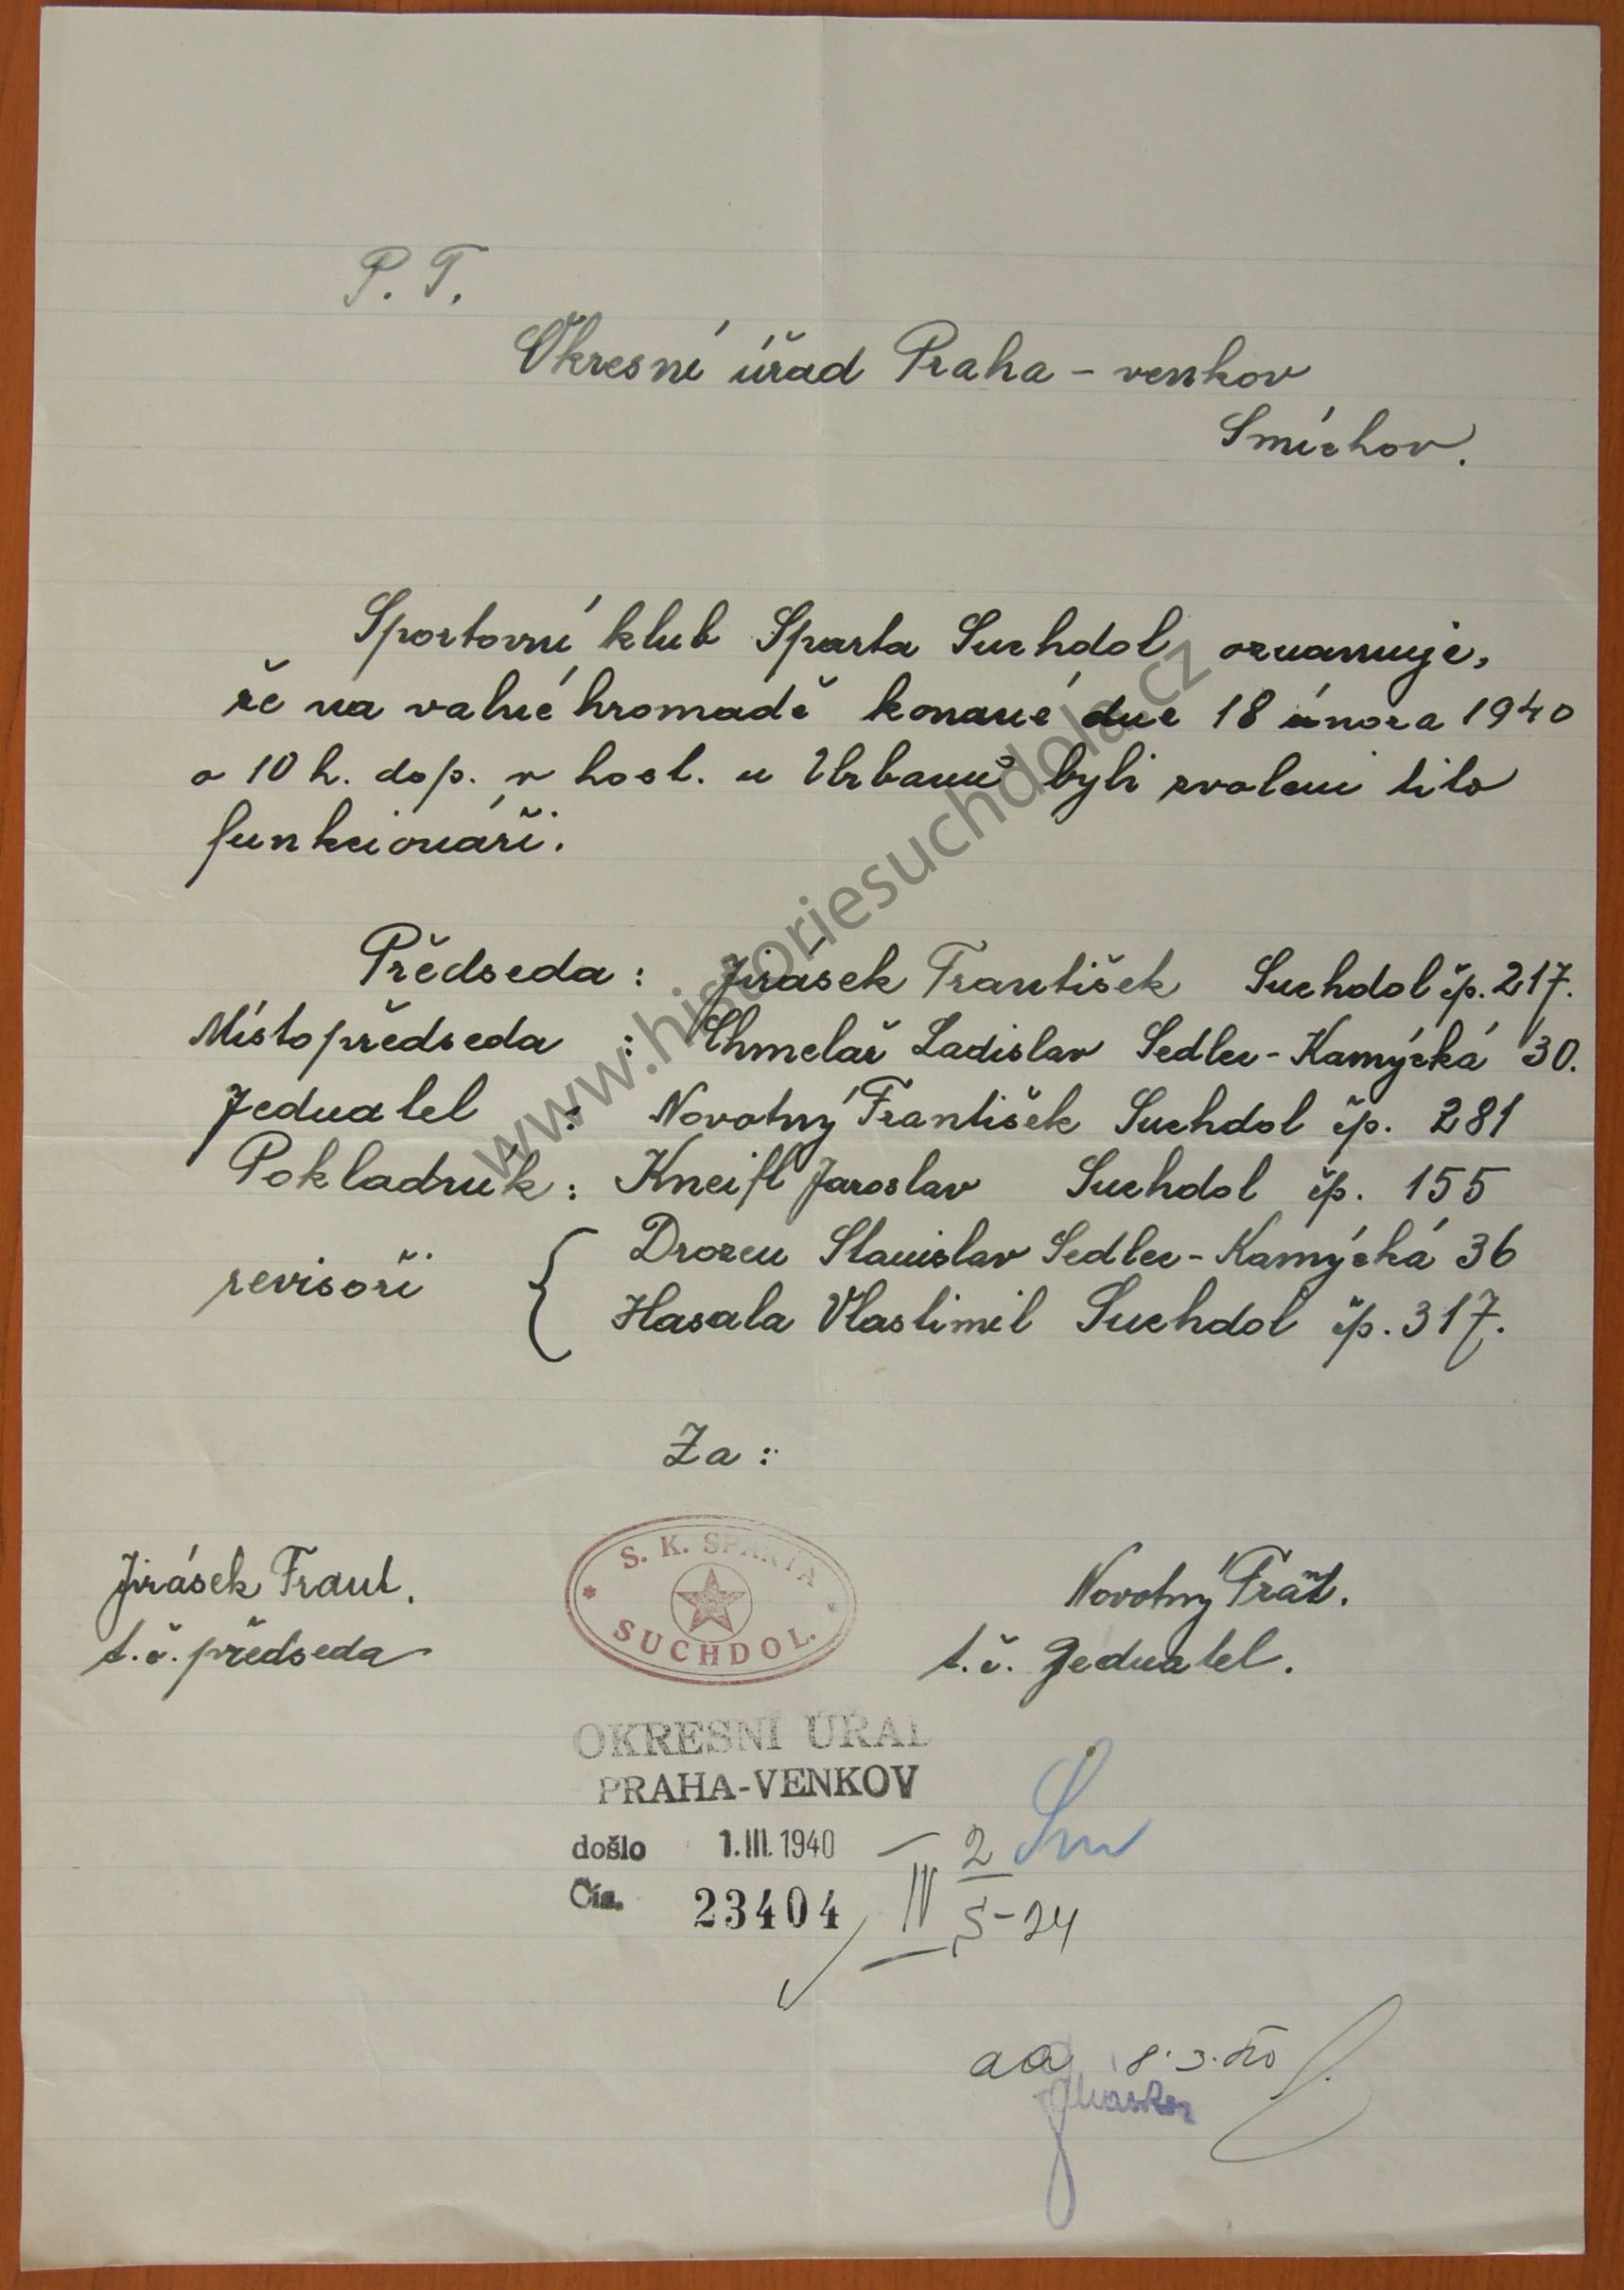 P. T.
Okresní úřad Praha - venkov
Smíchov.
Sportovní klub Sparta Suchdol oznamuje,
že na valné hromadě konané dne 18 února 1940
o 10 h. dop. v host. u Urbanů byli zvoleni tito
funkcionáři.
Předseda : Jirásek František Suchdol čp. 217.
Místopředseda : Chmelař Ladislav Sedlec - Kamýcká 30.
Jednatel : Novotný František Suchdol čp. 281
Pokladník : Kneifl Jaroslav Suchdol čp. 155
revisoři { Drozen Stanislav Sedlec - Kamýcká 36
Hasala Vlastimil Suchdol čp. 317.
Za :
Jirásek Frant.
t.č. předseda
S. K. SPARTA
SUCHDOL.
Novotný Frát.
t.č. Jednatel.
OKRESNÍ ÚŘAD
PRAHA-VENKOV
došlo 1. III. 1940
Čís. 23404
IV 2
S-24
aa 8.3.40
www.historiesuchdola.cz